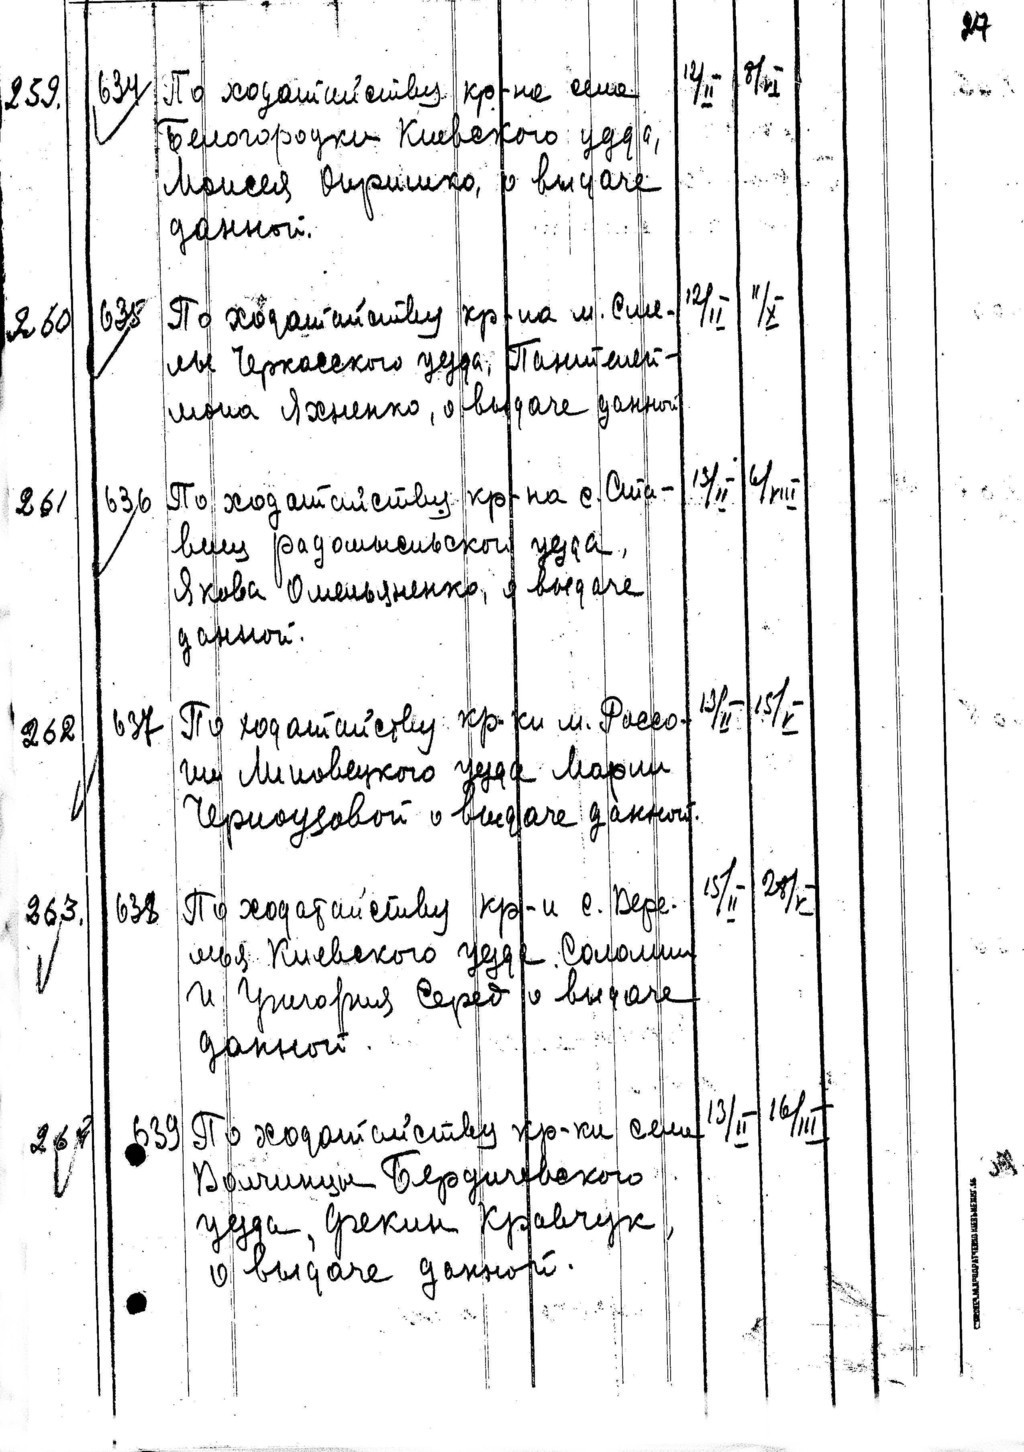 27
259. 634 По ходатайству кр-на села 12/II 8/VI
Белогородки Киевского уезда,
Моисея Опришко, о выдаче
данной.
260 635 По ходатайству кр-на м. Сме- 12/II 11/X
лы Черкасского уезда, Пантелей-
мона Яхненко, о выдаче данной
261 636 По ходатайству кр-на с. Ста- 13/II 6/VIII
вищ радомысльского уезда,
Якова Омельяненко, о выдаче
данной.
262 637 По ходатайству кр-ки м. Россо- 13/II 15/V
ши Липовецкого уезда Марии
Черноусовой о выдаче данной.
263. 638 По ходатайству кр-н с. Вере- 15/II 28/V
мья Киевского уезда Соломии
и Григория Серед о выдаче
данной.
264 639 По ходатайству кр-ки села 13/II 16/III
Волчинцы Бердичевского
уезда, Фекии Кравчук,
о выдаче данной.